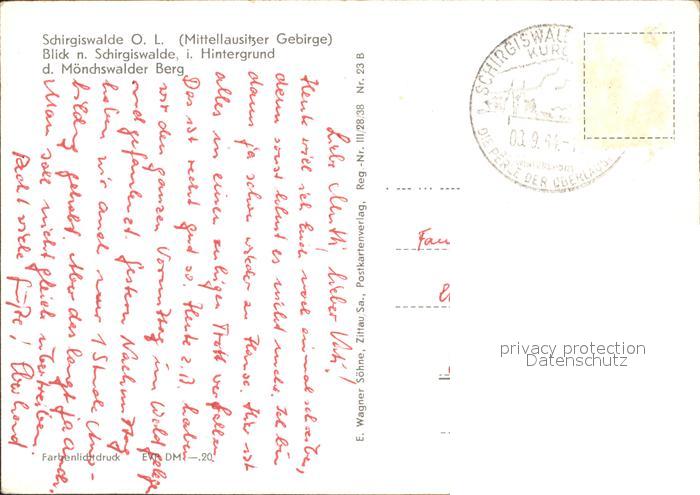 Schirgiswalde O. L. (Mittellausitzer Gebirge)
Blick n. Schirgiswalde, i. Hintergrund
d. Mönchswalder Berg
Liebe Mutti, lieber Vati!
Heute will ich Euch noch einmal schreiben,
denn sonst lohnt es nicht mehr. Ich bin
dann ja schon wieder zu Hause. Hier ist
alles in einen ruhigen Trott verfallen.
Das ist recht gut so. Heute z.B. haben
wir den ganzen Vormittag im Wald gelegen
und gefaulenzt. Gestern Nachmittag
haben wir auch nur 1 Stunde Aus-
bildung gehabt. Aber das langt ja auch.
Man soll nicht gleich übertreiben.
Recht viele Grüße! Eberhard
Farbenlichtdruck EVP DM —.20
E. Wagner Söhne, Zittau Sa., Postkartenverlag, Reg.-Nr. III/28/38 Nr. 23 B
SCHIRGISWAL
KURO
03.9.
DIE PERLE DER OBERLAUS
Fam
privacy protection
Datenschutz